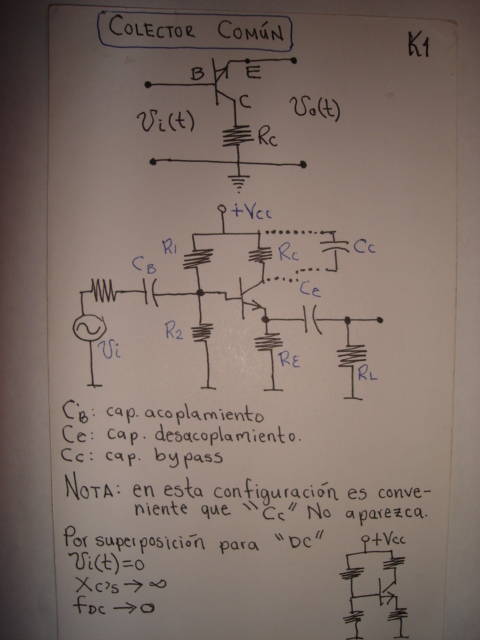 COLECTOR COMÚN
K1
B E
C
Vi(t) Vo(t)
Rc
+Vcc
R1 Rc Cc
CB Ce
R2
Vi RE RL
CB: cap. acoplamiento
Ce: cap. desacoplamiento.
Cc: cap. bypass
NOTA: en esta configuración es conve-
niente que "Cc" No aparezca.
Por superposición para "DC"
+Vcc
Vi(t)=0
Xc's → ∞
fDC → 0